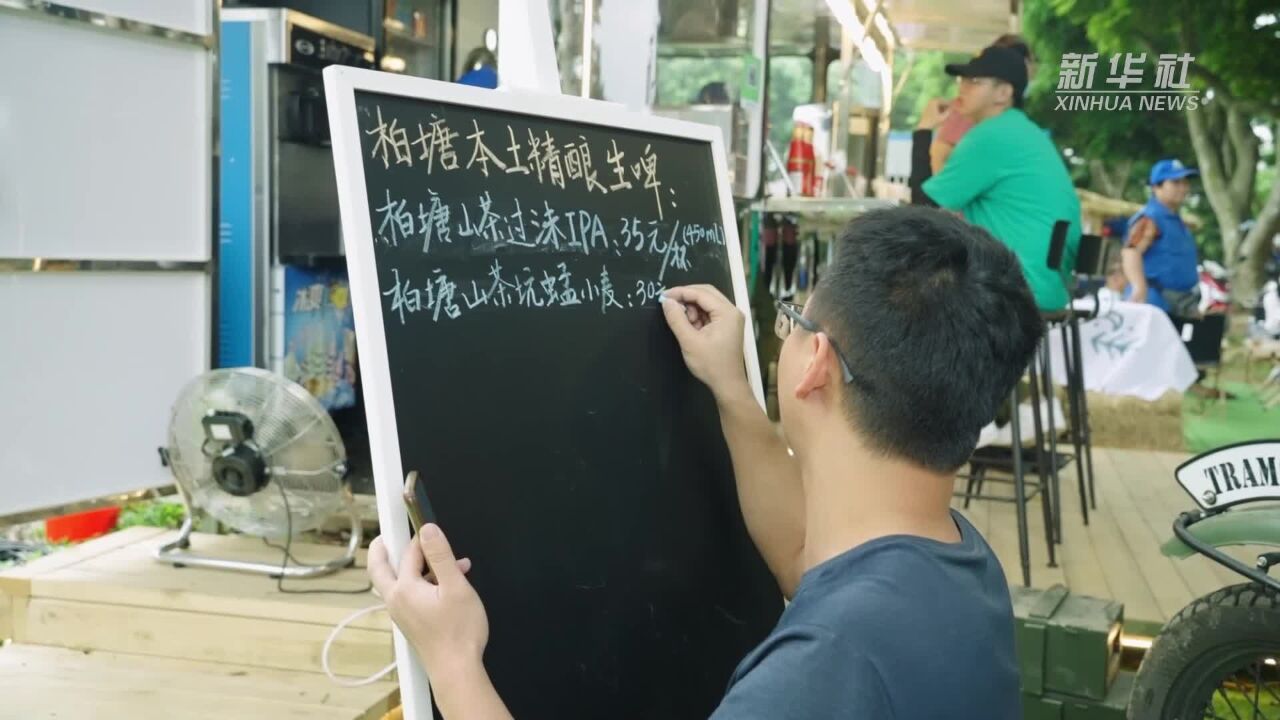 新华社
XINHUA NEWS
柏塘本土精酿生啤:
柏塘山茶过沫IPA:35元/杯(450mL)
柏塘山茶坑蜢小麦:30元
TRAM